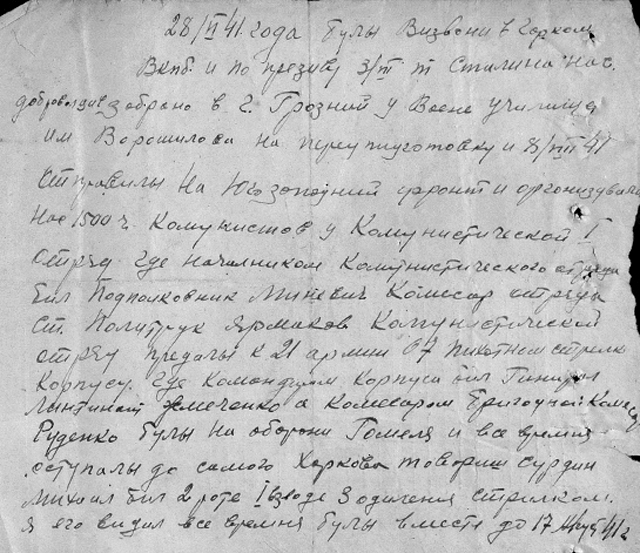 28/VI 41 года булы Визвони в Горком
Вкпб. и по презиву 3/VII т Сталина нас
добровольцив забрано в г. Грозний у Воене училища
им Ворошилова на перепидготовку и 8/VIII 41
Отправилы На Югозападний фронт и организували
Нас 1500 ч. Комунистов у Комунистической I
Отряд Где началником Комунистического отряда
бил Подполковник Миневич Комесар отряды
Ст. Политрук Ярмаков Комунистический
отряд предалы к 21 армии 67 пихотнем стрелк
Корпусу. Где Командуюм Корпуса бил Гинирал
Жмеченко а Комесаром Бригадной Комесар
Руденко булы На оборони Гомеля и все время
оступалы до самого Харкова товариш Сурдин
Михаил бил 2 роте I взводе 3 одиления стрилком.
Я его видил все время булы вместе до 17 41 г